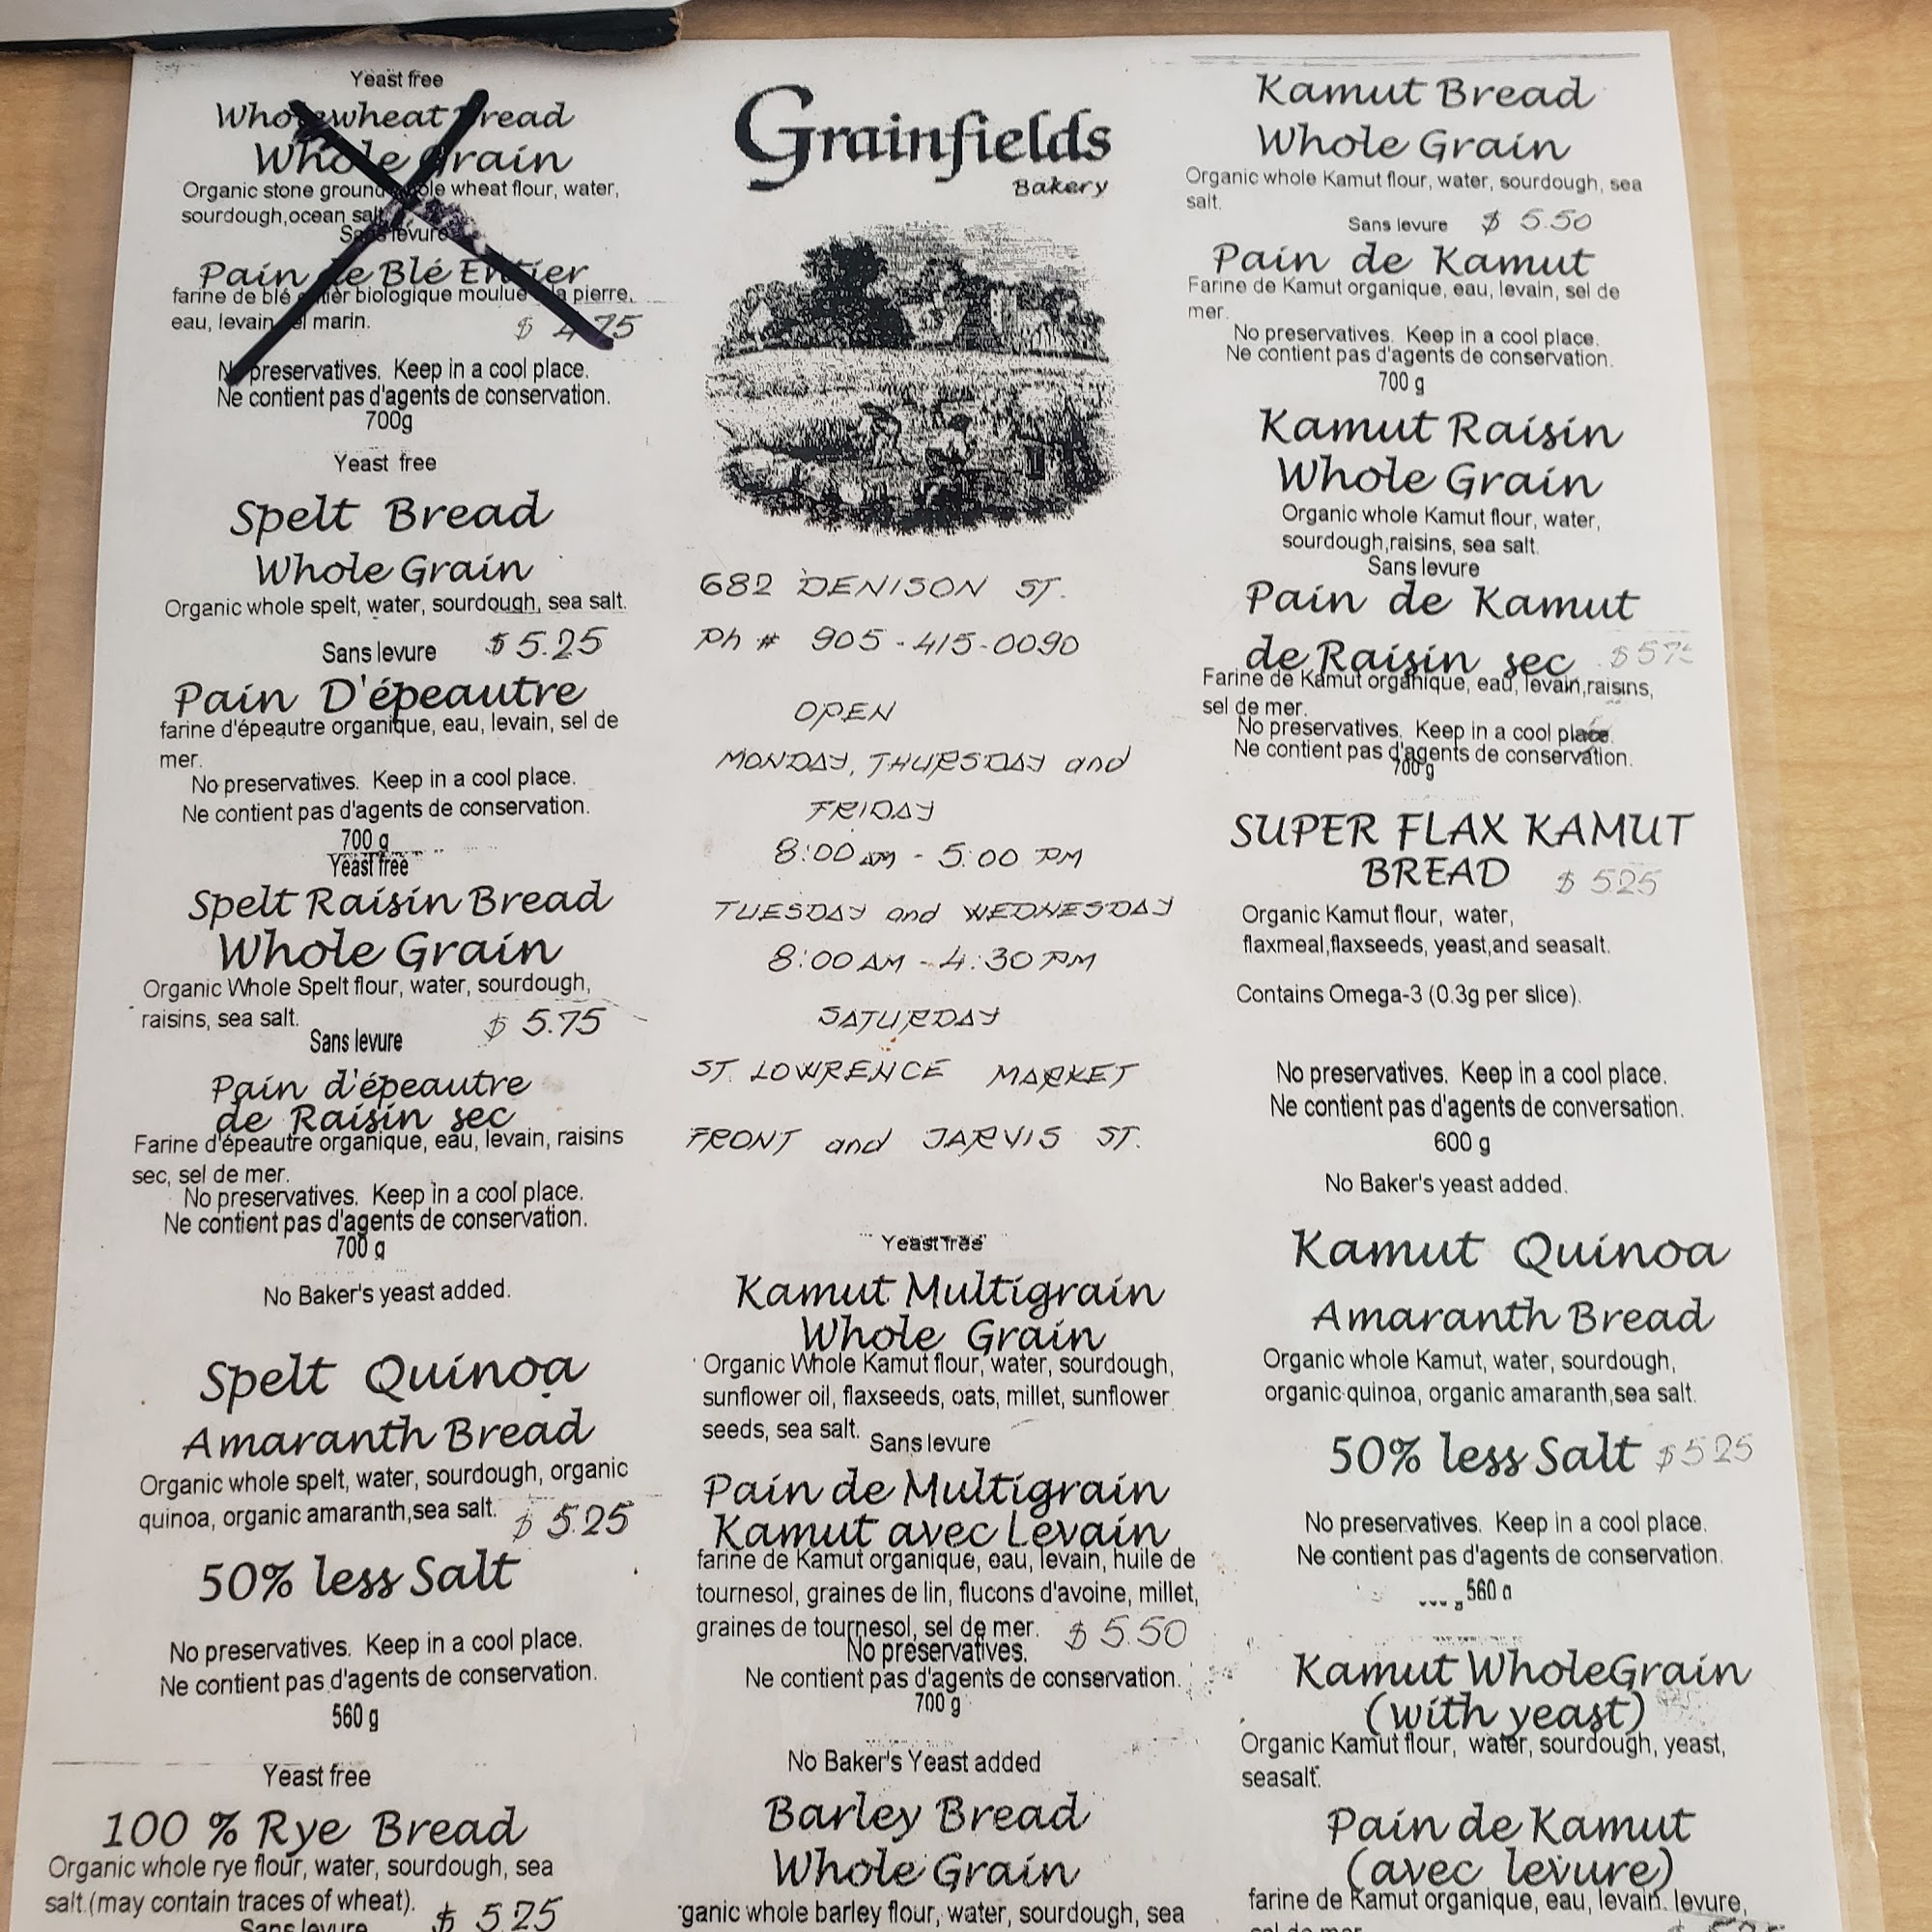 Yeast free
Wholewheat Bread
Whole Grain
Organic stone ground whole wheat flour, water,
sourdough,ocean salt
Sans levure
Pain de Blé Entier
farine de blé entier biologique moulue a pierre,
eau, levain, sel marin.
$ 4.75
No preservatives. Keep in a cool place.
Ne contient pas d'agents de conservation.
700g
Yeast free
Spelt Bread
Whole Grain
Organic whole spelt, water, sourdough, sea salt.
Sans levure $ 5.25
Pain D'épeautre
farine d'épeautre organique, eau, levain, sel de
mer.
No preservatives. Keep in a cool place.
Ne contient pas d'agents de conservation.
700 g
Yeast free
Spelt Raisin Bread
Whole Grain
Organic Whole Spelt flour, water, sourdough,
raisins, sea salt.
$ 5.75
Sans levure
Pain d'épeautre
de Raisin sec
Farine d'épeautre organique, eau, levain, raisins
sec, sel de mer.
No preservatives. Keep in a cool place.
Ne contient pas d'agents de conservation.
700 g
No Baker's yeast added.
Spelt Quinoa
Amaranth Bread
Organic whole spelt, water, sourdough, organic
quinoa, organic amaranth,sea salt.
$ 5.25
50% less Salt
No preservatives. Keep in a cool place.
Ne contient pas d'agents de conservation.
560 g
Yeast free
100 % Rye Bread
Organic whole rye flour, water, sourdough, sea
salt.(may contain traces of wheat).
Sans levure
Grainfields
Bakery
682 DENISON ST.
Ph # 905-415-0090
OPEN
MONDAY, THURSDAY and
FRIDAY
8:00 AM - 5:00 PM
TUESDAY and WEDNESDAY
8:00 AM - 4:30 PM
SATURDAY
ST. LOWRENCE MARKET
FRONT and JARVIS ST.
Yeast free
Kamut Multigrain
Whole Grain
Organic Whole Kamut flour, water, sourdough,
sunflower oil, flaxseeds, oats, millet, sunflower
seeds, sea salt.
Sans levure
Pain de Multigrain
Kamut avec Levain
farine de Kamut organique, eau, levain, huile de
tournesol, graines de lin, flucons d'avoine, millet,
graines de tournesol, sel de mer. $ 5.50
No preservatives.
Ne contient pas d'agents de conservation.
700 g
No Baker's Yeast added
Barley Bread
Whole Grain
ganic whole barley flour, water, sourdough, sea
Kamut Bread
Whole Grain
Organic whole Kamut flour, water, sourdough, sea
salt.
Sans levure $ 5.50
Pain de Kamut
Farine de Kamut organique, eau, levain, sel de
mer.
No preservatives. Keep in a cool place.
Ne contient pas d'agents de conservation.
700 g
Kamut Raisin
Whole Grain
Organic whole Kamut flour, water,
sourdough,raisins, sea salt.
Sans levure
Pain de Kamut
de Raisin sec $ 575
Farine de Kamut organique, eau, levain,raisins,
sel de mer.
No preservatives. Keep in a cool place.
Ne contient pas d'agents de conservation.
700 g
SUPER FLAX KAMUT
BREAD $ 525
Organic Kamut flour, water,
flaxmeal,flaxseeds, yeast,and seasalt.
Contains Omega-3 (0.3g per slice).
No preservatives. Keep in a cool place.
Ne contient pas d'agents de conversation.
600 g
No Baker's yeast added.
Kamut Quinoa
Amaranth Bread
Organic whole Kamut, water, sourdough,
organic quinoa, organic amaranth,sea salt.
50% less Salt $ 525
No preservatives. Keep in a cool place.
Ne contient pas d'agents de conservation.
560 g
Kamut WholeGrain
(with yeast)
Organic Kamut flour, water, sourdough, yeast,
seasalt.
Pain de Kamut
(avec levure)
farine de Kamut organique, eau, levain. levure,
sel de mer